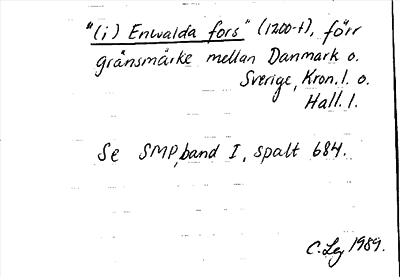 "(i) Enwalda fors" (1200-t), förr
gränsmärke mellan Danmark o.
Sverige, Kron. l. o.
Hall. l.
Se SMP, band I, spalt 684.
C. Lej 1989.